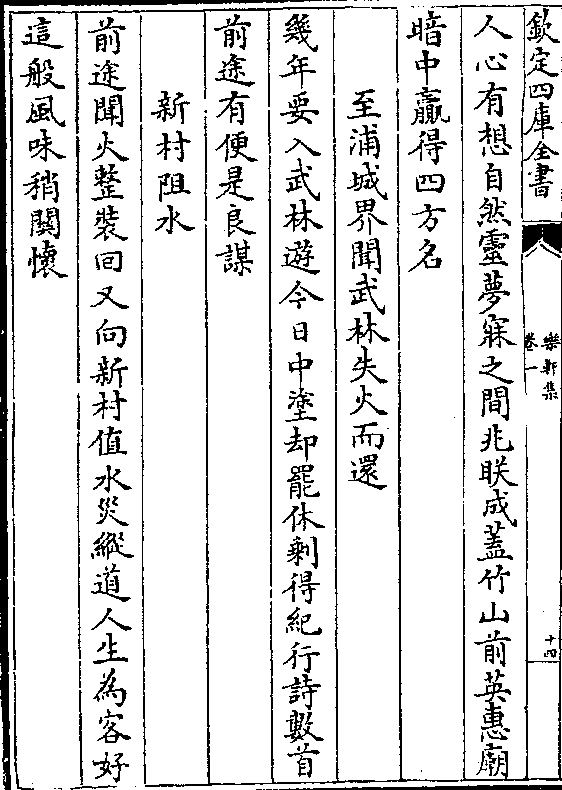 欽定四庫全書
樂軒集
卷一
十四
人心有想自然靈夢寐之間兆眹成蓋竹山前英惠廟
暗中贏得四方名
至浦城界聞武林失火而還
幾年要入武林遊今日中塗却罷休剩得紀行詩數首
前途有便是良謀
新村阻水
前途聞火整裝囘又向新村值水災縱道人生為客好
這般風味稍關懷